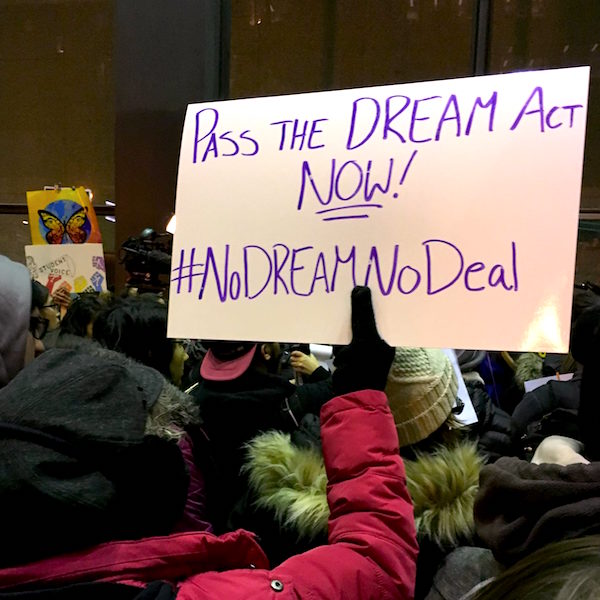 PASS THE DREAM ACT
NOW!
#NoDREAMNoDeal
STUDENT
VOICE